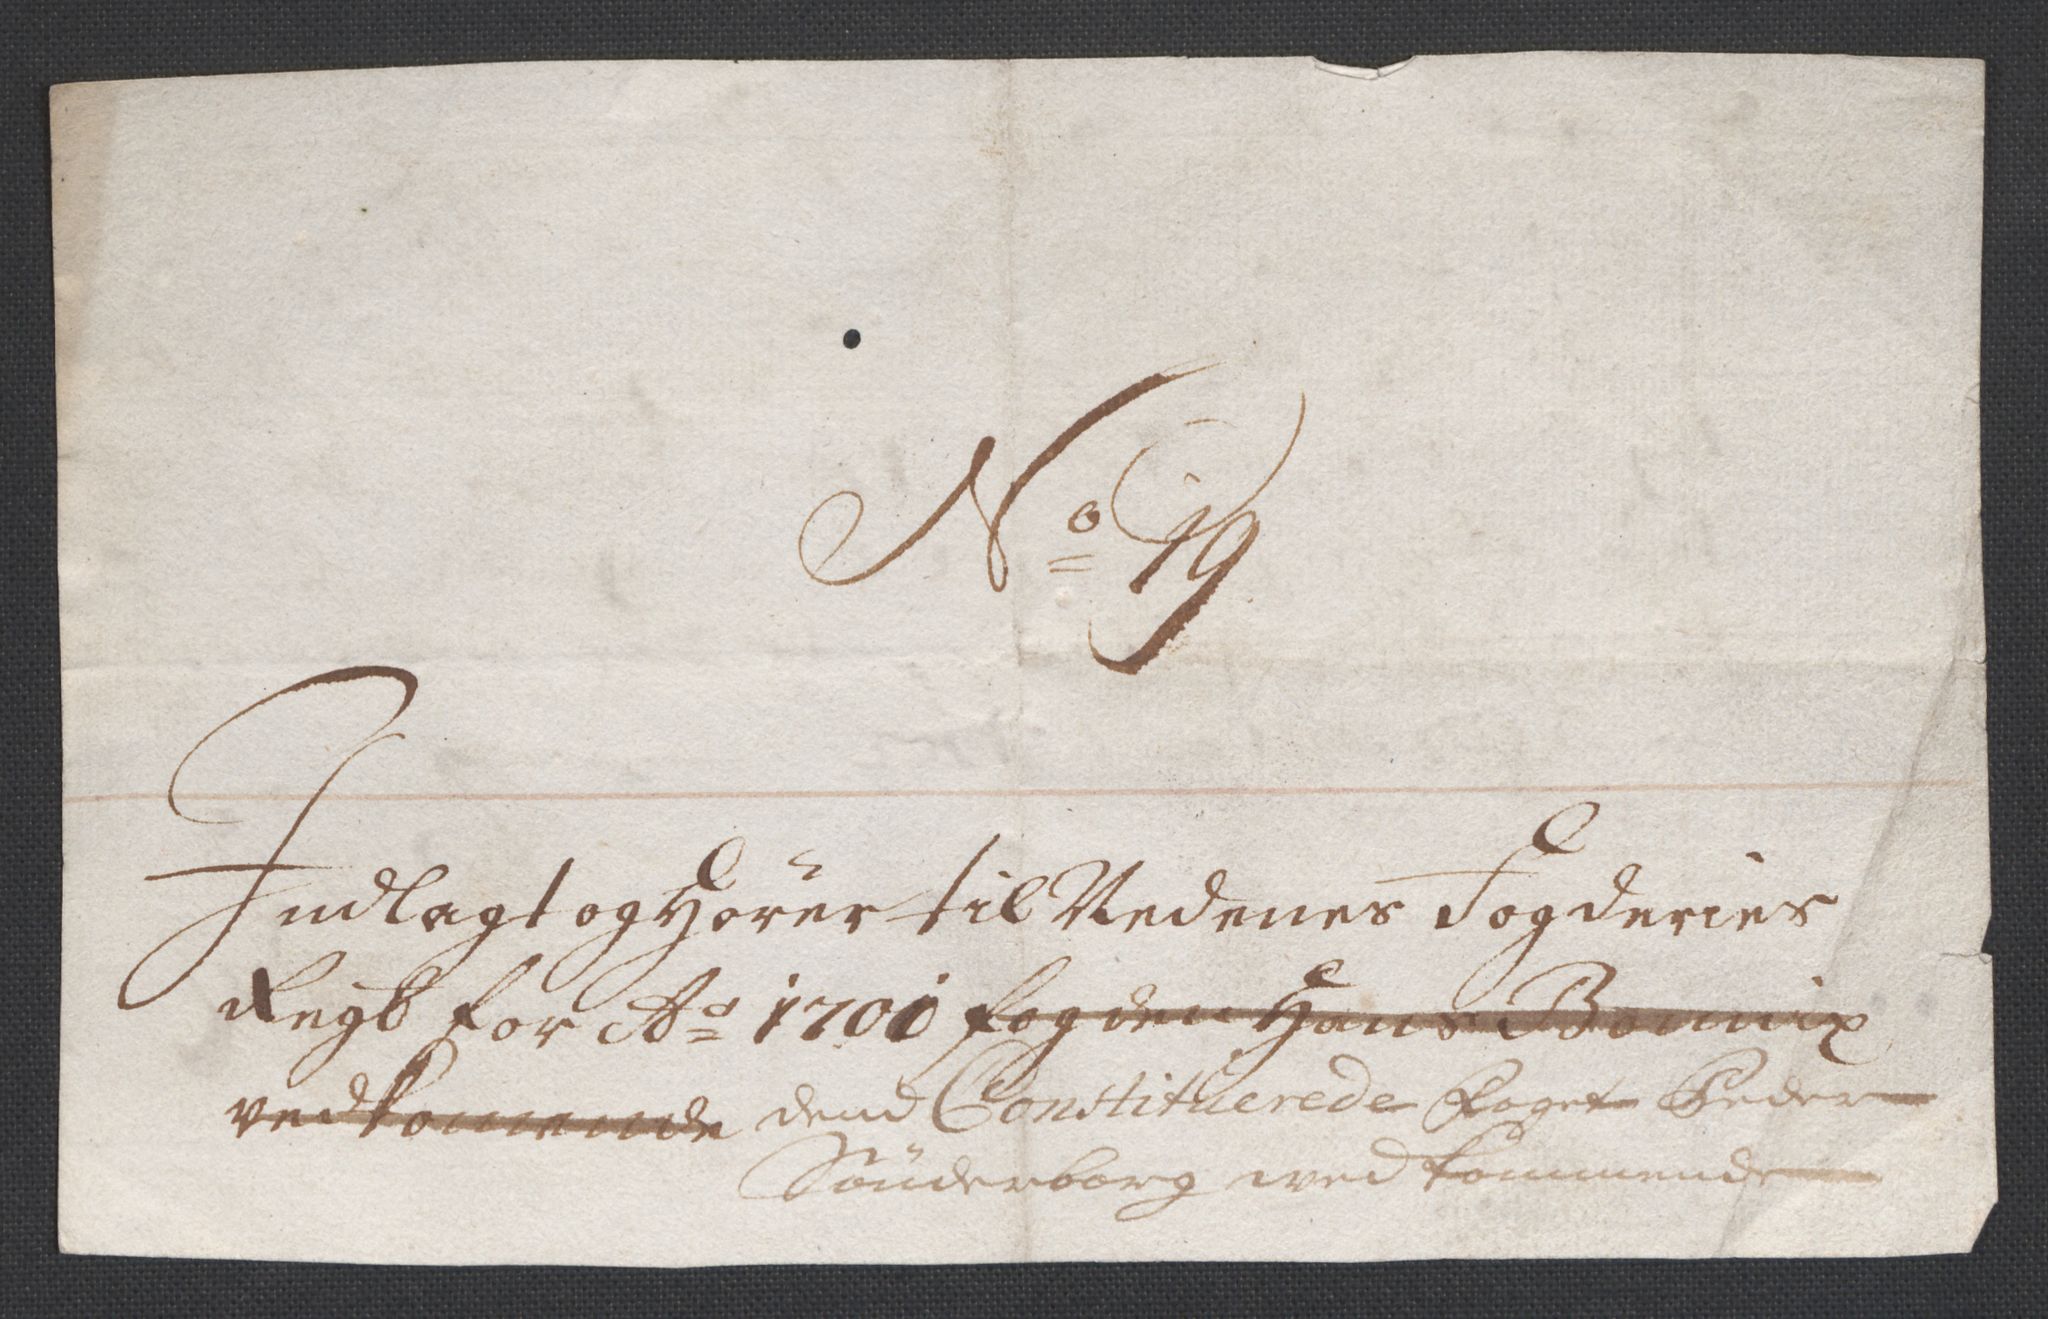 No 19
Indlagt og Hörer til Nedenes Fogderies
Regb for Ao 1701 fogden Hans Bonnix
vedkommende dend Constituerede Foget Peder
Sönderborg wedkommende